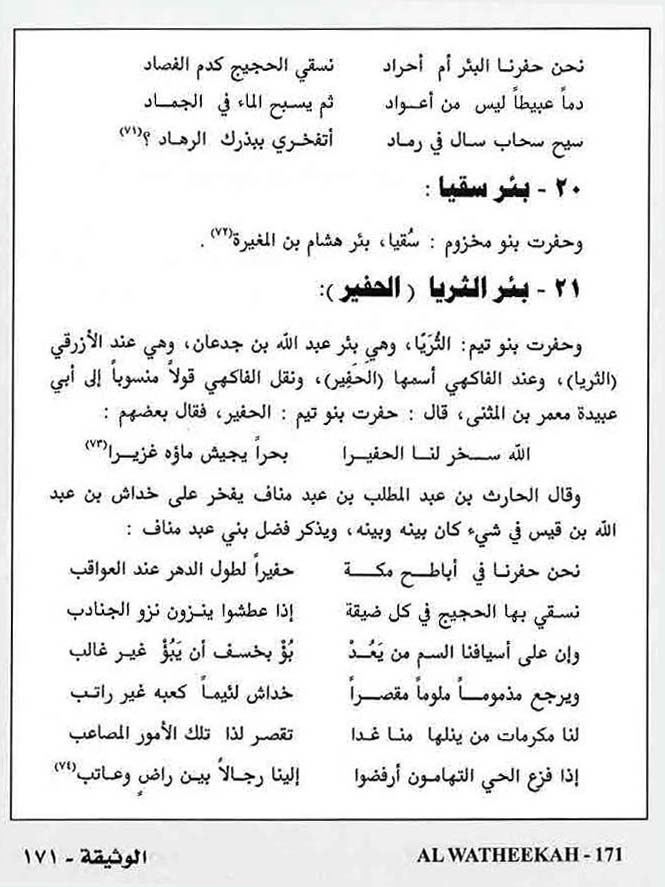 نحن حفرنا البئر أم أحراد نسقي الحجيج كدم الفصاد
دماً عبيطاً ليس من أعواد ثم يسبح الماء في الجماد
سيح سحاب سال في رماد أتفخري ببذرك الرهاد ؟(٧١)
٢٠ - بئر سقيا :
وحفرت بنو مخزوم : سُقيا، بئر هشام بن المغيرة(٧٢) .
٢١ - بئر الثريا (الحفير):
وحفرت بنو تيم: الثُريّا، وهي بئر عبد الله بن جدعان، وهي عند الأزرقي
(الثريا)، وعند الفاكهي أسمها (الحفِير)، ونقل الفاكهي قولاً منسوباً إلى أبي
عبيدة معمر بن المثنى، قال : حفرت بنو تيم : الحفير، فقال بعضهم :
الله سخر لنا الحفيرا بحراً يجيش ماؤه غزيرا(٧٣)
وقال الحارث بن عبد المطلب بن عبد مناف يفخر على خداش بن عبد
الله بن قيس في شيء كان بينه وبينه، ويذكر فضل بني عبد مناف :
نحن حفرنا في أباطح مكة حفيراً لطول الدهر عند العواقب
نسقي بها الحجيج في كل ضيقة إذا عطشوا ينزون نزو الجنادب
وإن على أسيافنا السم من يَعُدْ بُؤْ بخسف أن يَبُؤْ غير غالب
ويرجع مذموماً ملوماً مقصراً خداش لئيماً كعبه غير راتب
لنا مكرمات من ينلها منا غدا تقصر لذا تلك الأمور المصاعب
إذا فزع الحي التهامون أرفضوا إلينا رجالاً بين راضٍ وعاتب(٧٤)
الوثيقة - ١٧١ AL WATHEEKAH - 171